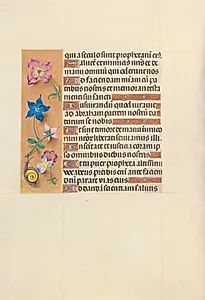 qui a seculo sunt prophetarū ei9
Salutē ex inimicis nr̄is et de
manu omniū qui oderunt nos
Ad faciendam miam cum pa
tribus nostris et memorari testa
menti sui sancti
Iusiurandū quod iurauit
ad abraham patrem nostrum da
turum se nobis
Ut sine timore de manu inimico
rum nr̄orum liberati seruiamus illi
In sctitate et iusticia coram ip
so omnibus diebus nostris
Et tu puer propheta altissimi
vocaberis preibis enim ante faciē
dn̄i parare vias eius
Ad dandā scientiam salutis